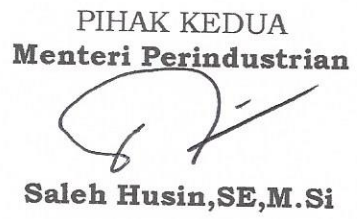 PIHAK KEDUA
Menteri Perindustrian
Saleh Husin,SE,M.Si